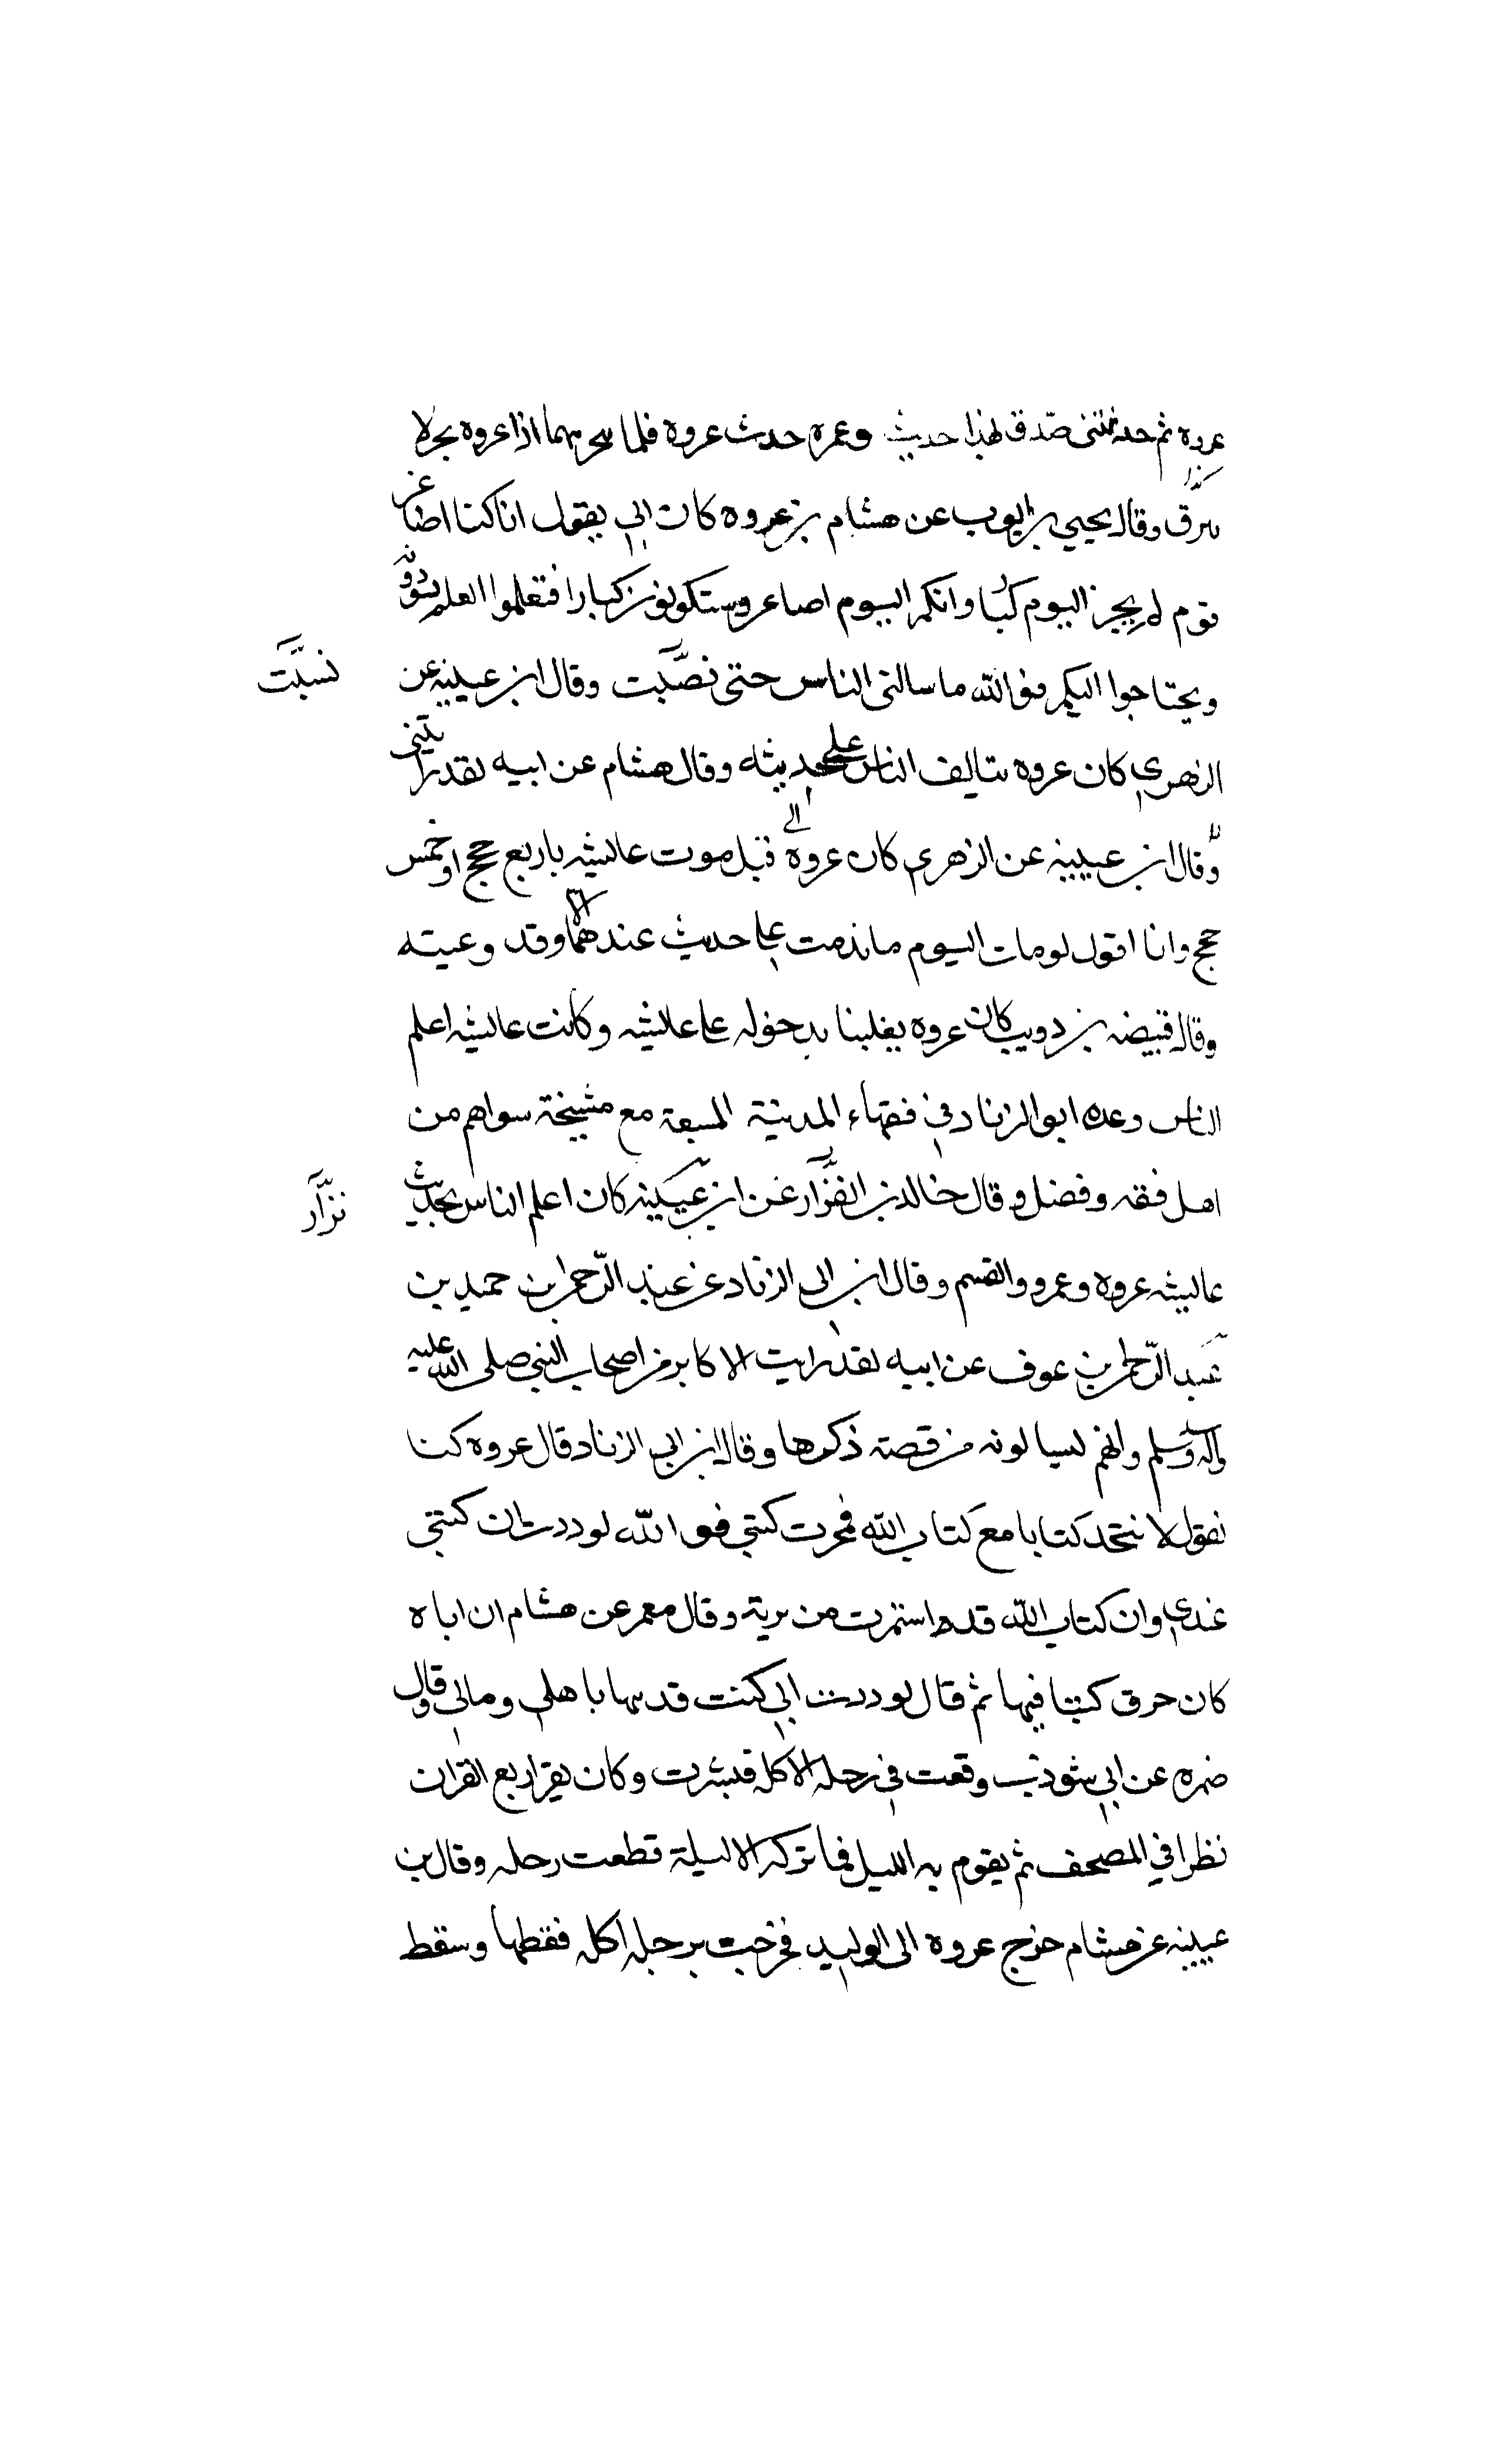 عروه ثم حدثتنى صدق لهذا حديث وعمره حدث عروه فلما بحرتهما اذا عروه بحر لا
سرق وقال يحيي بن ايوب عن هشام بن عروه كان ابي يقول انا كنا اصاغر
قوم ثم نحن اليوم كبارا وانكم اليوم اصاغر وستكونون كبارا فتعلموا العلم تسودوا به
ويحتاجوا اليكم فوالله ما سالنى الناس حتى نصّبت وقال ابن عيينه عن
نسيّت
الزهري كان عروه يتالف الناس على حديثه وقال هشام عن ابيه لقد رايتنى
وقال ابن عيينه عن الزهري كان عروه الى قبل موت عائشه باربع حجج او خمس
حجج وانا اقول لو مات اليوم ما ندمت على حديث عندها الا وقد وعيته
وقال قبيضه بن دويب كان عروه يغلبنا بدخوله على عائشه وكانت عائشه اعلم
الناس وعده ابو الزناد في فقهاء المدينة السبعة مع مشيخة سواهم من
اهل فقه وفضل وقال خالد بن الفزّار عن ابن عيينه كان اعلم الناس بحديث
نزّار
عائشه عروه وعمره والقسم وقال ابن ابى الزناد عن عبد الرّحمن بن حميد بن
عبد الرّحمن بن عوف عن ابيه لقد رايت الاكابر من اصحاب النبي صلى الله عليه
وآله وسلم وانهم ليسالونه من قصة ذكرها وقال ابن ابى الزناد قال عروه كنا
نقول لا نتخذ كتابا مع كتاب الله فمحوت كتبي فوالله لوددت ان كتبي
عندي وان كتاب الله قد استمرت مريرته وقال معمر عن هشام ان اباه
كان حرق كتبا فيها ثم قال لوددت اني كنت فديتها باهلى ومالى وقال
ضمره عن ابن شوذب وقعت في رحله الاكلة فنشرت وكان يقرا ربع القران
نظرا في المصحف ثم يقوم به الليل فما تركه الا ليلة قطعت رحله وقال بن
عيينه عن هشام خرج عروه الى الوليد فخرجت برجله اكله فقطعها وسقط